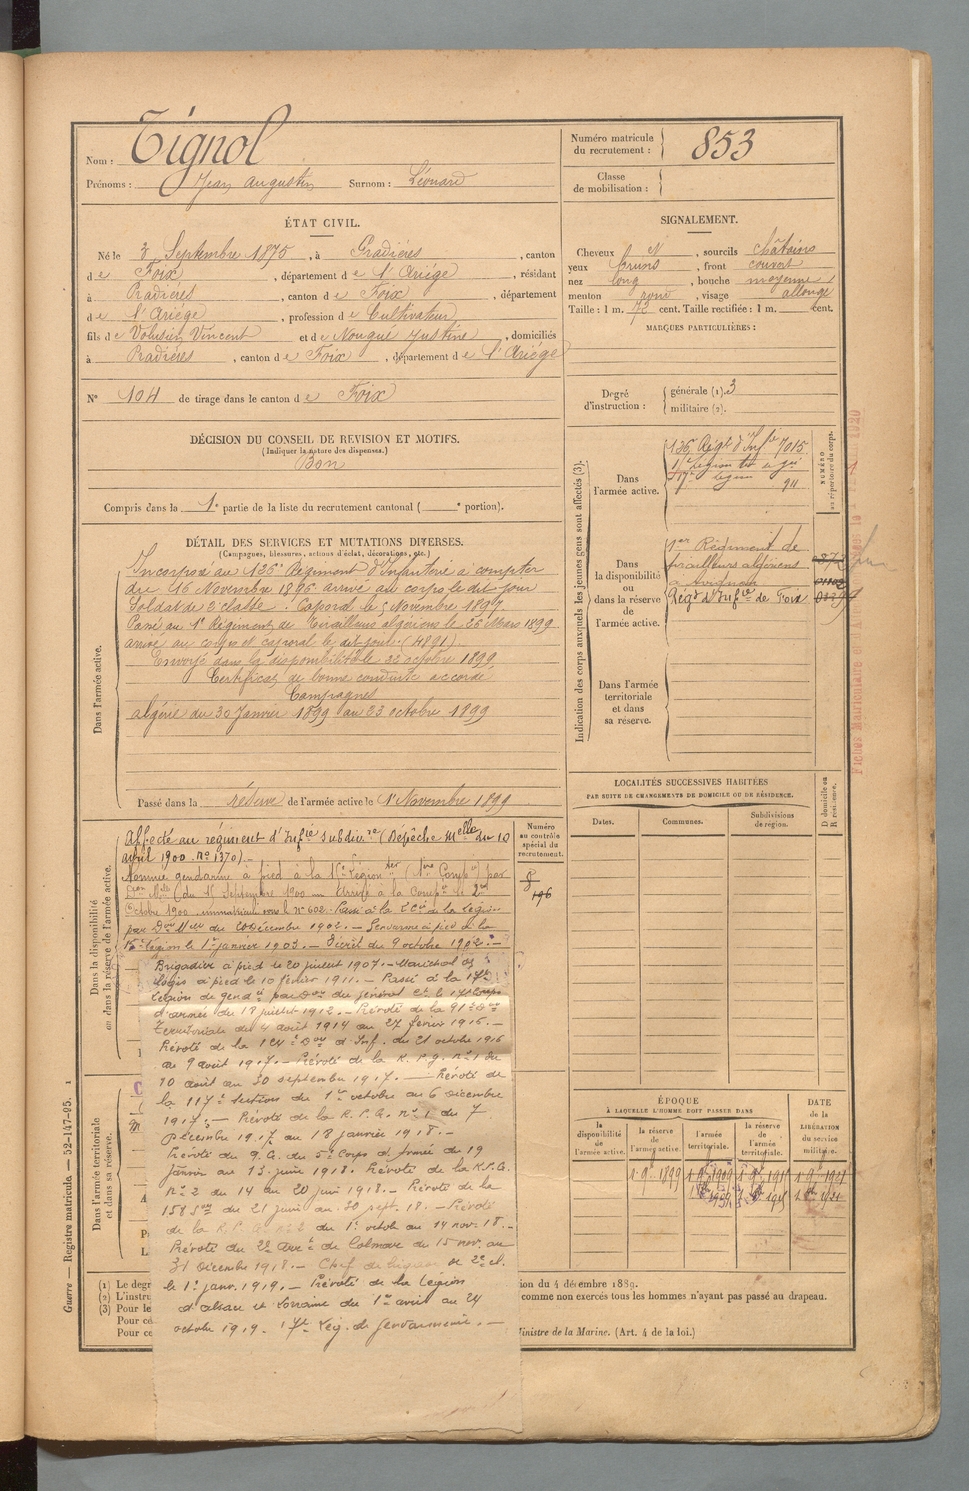 Nom : Tignol
Prénoms : Jean Augustin Surnom : Léonard
Numéro matricule du recrutement : 853
Classe de mobilisation :
ÉTAT CIVIL.
Né le 3 Septembre 1875, à Pradières, canton
de Foix, département de l'Ariège, résidant
à Pradières, canton de Foix, département
de l'Ariège, profession de Cultivateur
fils de Volusien Vincent et de Nougué Justine, domiciliés
à Pradières, canton de Foix, département de l'Ariège
N° 104 de tirage dans le canton de Foix
SIGNALEMENT.
Cheveux N, sourcils châtains
yeux bruns, front couvert
nez long, bouche moyenne
menton rond, visage allongé
Taille : 1 m. 73 cent. Taille rectifiée : 1 m. cent.
MARQUES PARTICULIÈRES :
Degré d'instruction : générale (1). 3
militaire (2).
DÉCISION DU CONSEIL DE REVISION ET MOTIFS.
(Indiquer la nature des dispenses.)
Bon
Compris dans la 1e partie de la liste du recrutement cantonal ( e portion).
DÉTAIL DES SERVICES ET MUTATIONS DIVERSES.
(Campagnes, blessures, actions d'éclat, décorations, etc.)
Dans l'armée active.
Incorporé au 126e Régiment d'Infanterie à compter
du 16 Novembre 1896 arrivé au corps le dit jour
Soldat de 2e classe. Caporal le 5 Novembre 1897.
Passé au 1er Régiment de Tirailleurs algériens le 26 Mars 1899
arrivé au corps et caporal le dit jour. (4891)
Envoyé dans la disponibilité le 23 octobre 1899
Certificat de bonne conduite accordé
Campagnes
Algérie du 30 Janvier 1899 au 23 octobre 1899
Passé dans la réserve de l'armée active le 1er Novembre 1899
Indication des corps auxquels les jeunes gens sont affectés (3).
NUMÉRO au répertoire du corps.
Dans l'armée active.
126e Régt d'Infie 7015
17e légion 911
Dans la disponibilité ou dans la réserve de l'armée active.
1er Régiment de
tirailleurs algériens
à Avignon
Régt d'Infie de Foix
Dans l'armée territoriale et dans sa réserve.
LOCALITÉS SUCCESSIVES HABITÉES
PAR SUITE DE CHANGEMENTS DE DOMICILE OU DE RÉSIDENCE.
Dates. Communes. Subdivisions de région. D domicile ou R résidence.
Dans la disponibilité ou dans la réserve de l'armée active.
Numéro au contrôle spécial du recrutement.
196
Affecté au régiment d'Infie subdivre (Dépêche Melle du 10
avril 1900 no 1370).
Nommé gendarme à pied à la 15e Légion ter (1ère Compie) par
Don Melle du 15 Septembre 1900 arrivé à la Compie le 2
Octobre 1900 immatriculé sous le No 602. Passé à la Cie de la Légion
par Don Melle du 20 Décembre 1902. — Gendarme à pied à la
15e Légion le 1er janvier 1903. — Décret du 9 octobre 1902. —
Brigadier à pied le 20 juillet 1907. — Maréchal des
logis à pied le 10 février 1911. — Passé à la 17e
légion de gendie par Don du général Ct le 17e Corps
d'armée du 18 juillet 1912. — Prévôté de la 91e Don
Territoriale du 4 août 1914 au 27 février 1916. —
Prévôté de la 124e Don d'Inf. du 21 octobre 1916
au 9 août 1917. — Prévôté de la R.P.G. no 1 du
10 août au 30 septembre 1917. — Prévôté de
la 117e section du 1er octobre au 6 décembre
1917. — Prévôté de la R.P.G. no 1 du 7
décembre 1917 au 18 janvier 1918. —
Prévôté du Q.G. du 5e Corps d'Armée du 19
janvier au 13 juin 1918. Prévôté de la R.P.G.
no 2 du 14 au 20 juin 1918. — Prévôté de la
158 Don du 21 juin au 30 sept. 18. — Prévôté
de la R.P.G. no 2 du 1er octob au 14 nov. 18. —
Prévôté du 2e Arrt de Colmar du 15 nov. au
31 Décembre 1918. — Chef de brigade de 2e cl.
le 1er janv. 1919. — Prévôté de la Légion
d'alsace et Lorraine du 1er avril au 24
octobre 1919. 17e Lég. de gendarmerie. —
Dans l'armée territoriale et dans sa réserve.
ÉPOQUE
À LAQUELLE L'HOMME DOIT PASSER DANS
la disponibilité de l'armée active. la réserve de l'armée active. l'armée territoriale. la réserve de l'armée territoriale.
DATE de la LIBÉRATION du service militaire.
1er 9bre 1899
Guerre — Registre matricule. — 52-147-95. 1
(1) Le degr
(2) L'instru
(3) Pour le
Pour ce
Pour ce
ion du 4 décembre 1889.
comme non exercés tous les hommes n'ayant pas passé au drapeau.
Ministre de la Marine. (Art. 4 de la loi.)